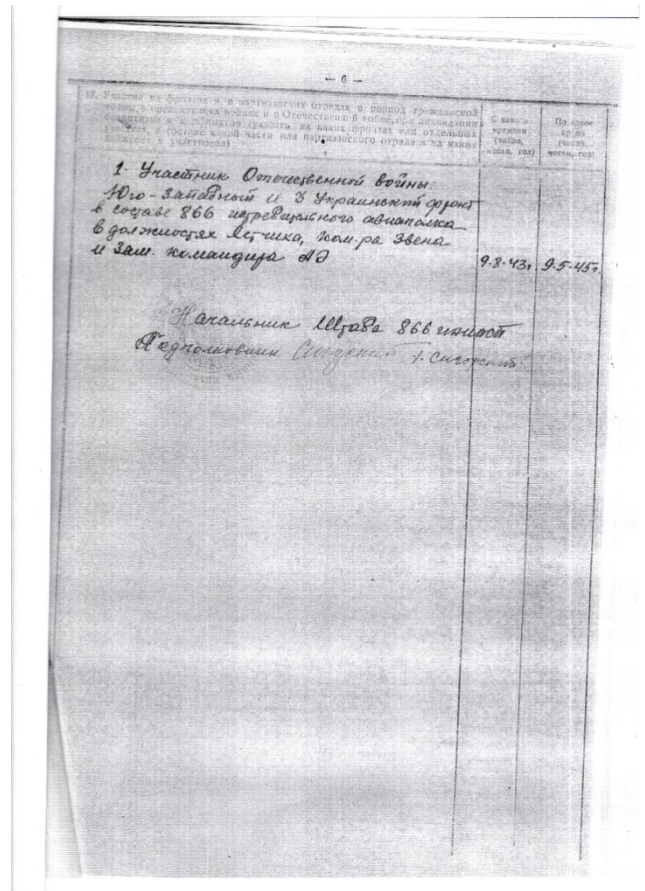 — 6 —
17. Участие на фронтах и в партизанских отрядах в период гражданской
войны, в последующих войнах и в Отечественной войне, в ликвидации
бандитизма и (указать, на каких фронтах или отдельных
участках, в составе какой части или партизанского отряда и на каких
должностях участвовал)
С какого
времени
(число,
месяц, год)
По какое
время
(число,
месяц, год)
1. Участник Отечественной войны.
Юго-Западный и 3 Украинский фронт
в составе 866 истребительного авиаполка
в должностях летчика, ком-ра звена
и зам. командира АЭ
9.8.43г. 9.5.45г.
Начальник Штаба 866
Подполковник